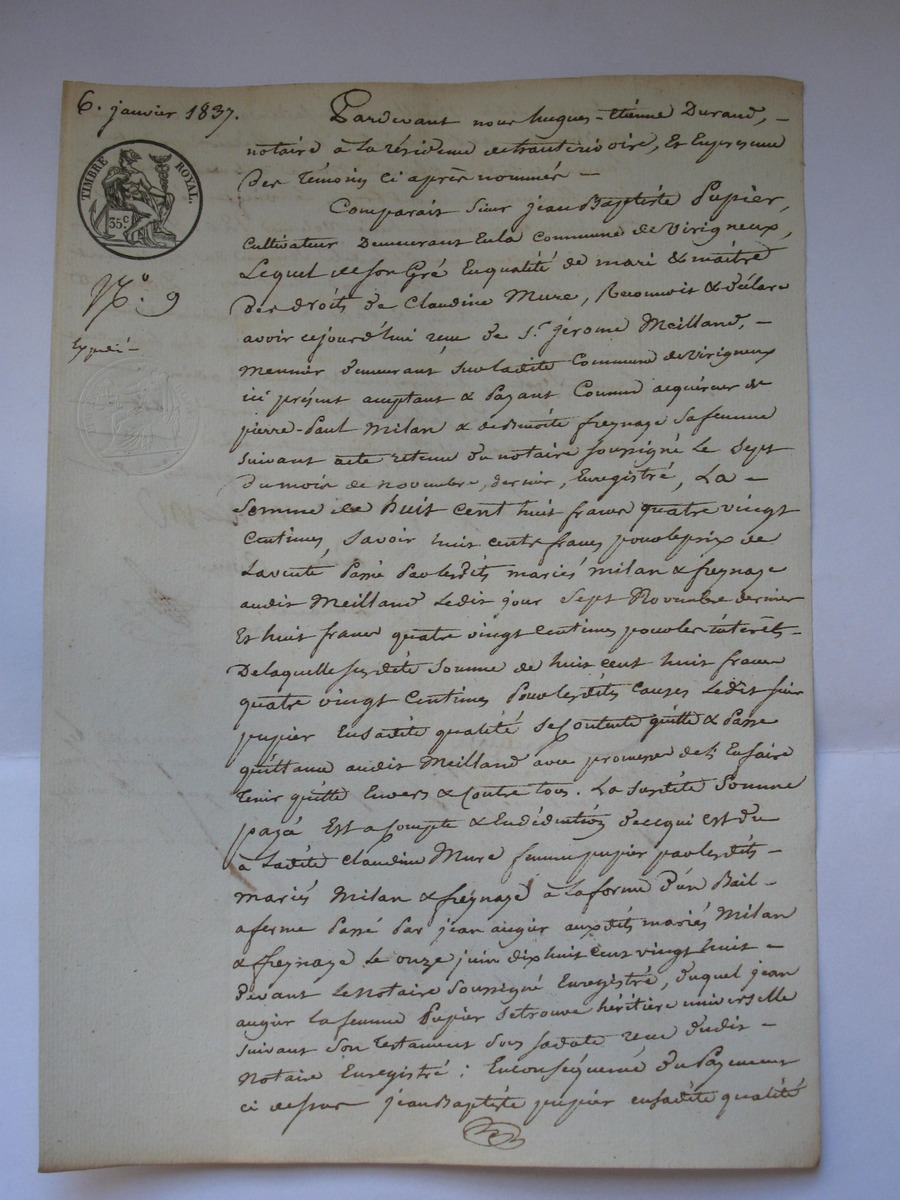 6. janvier 1837.
TIMBRE ROYAL.
35 c
N.o 9
Expédié
Pardevant nous hugues-étienne Durand,
notaire à la résidence de et En présence
Des Témoins ci après nommés
Comparait Sieur jean Baptiste Pupier,
cultivateur Demeurant En la Commune de Virigneux,
Lequel de son Gré En qualité de mari & maître
Des droits de Claudine Mure, Reconnoit & déclare
avoir cejourd'hui recu de Sr. jérome Meilland,
meunier demeurant sur ladite Commune de Virigneux
ici présent acceptant & Payant Comme acquéreur de
pierre-Paul Milan & de Benoîte freynage sa femme
suivant acte retenu du notaire soussigné le Sept
du mois de novembre, dernier, Enregistré, La
Somme de Huit cent huit francs quatre vingt
Centimes, Savoir huit cents francs pour le prix de
La vente Passé Par lesdits mariés milan & freynage
audit Meilland ledit jour Sept Novembre dernier
Et huit francs quatre vingt Centimes pour les intérêts
De laquelle susdite Somme de huit cent huit francs
quatre vingt Centimes Pour lesdites causes ledit sieur
pupier En sadite qualité se Contente quitte & Passe
quittance audit Meilland avec promesse de l'En faire
Tenir quitte Envers & Contre tous. La susdite Somme
payé Est a Compte & En déduction de ce qui est du
à Ladite Claudine Mure femme pupier par lesdits
mariés Milan & freynage à la forme d'un Bail
a ferme Passé Par jean augier auxdits mariés Milan
& freynage le onze juin dix huit cent vingt huit
Devant le Notaire Soussigné Enregistré, duquel jean
augier la femme Pupier se trouve héritière universelle
suivant Son Testament sa date recu dudit
Notaire Enregistré ; En Conséquence du Payement
ci dessus jean Baptiste pupier en sadite qualité